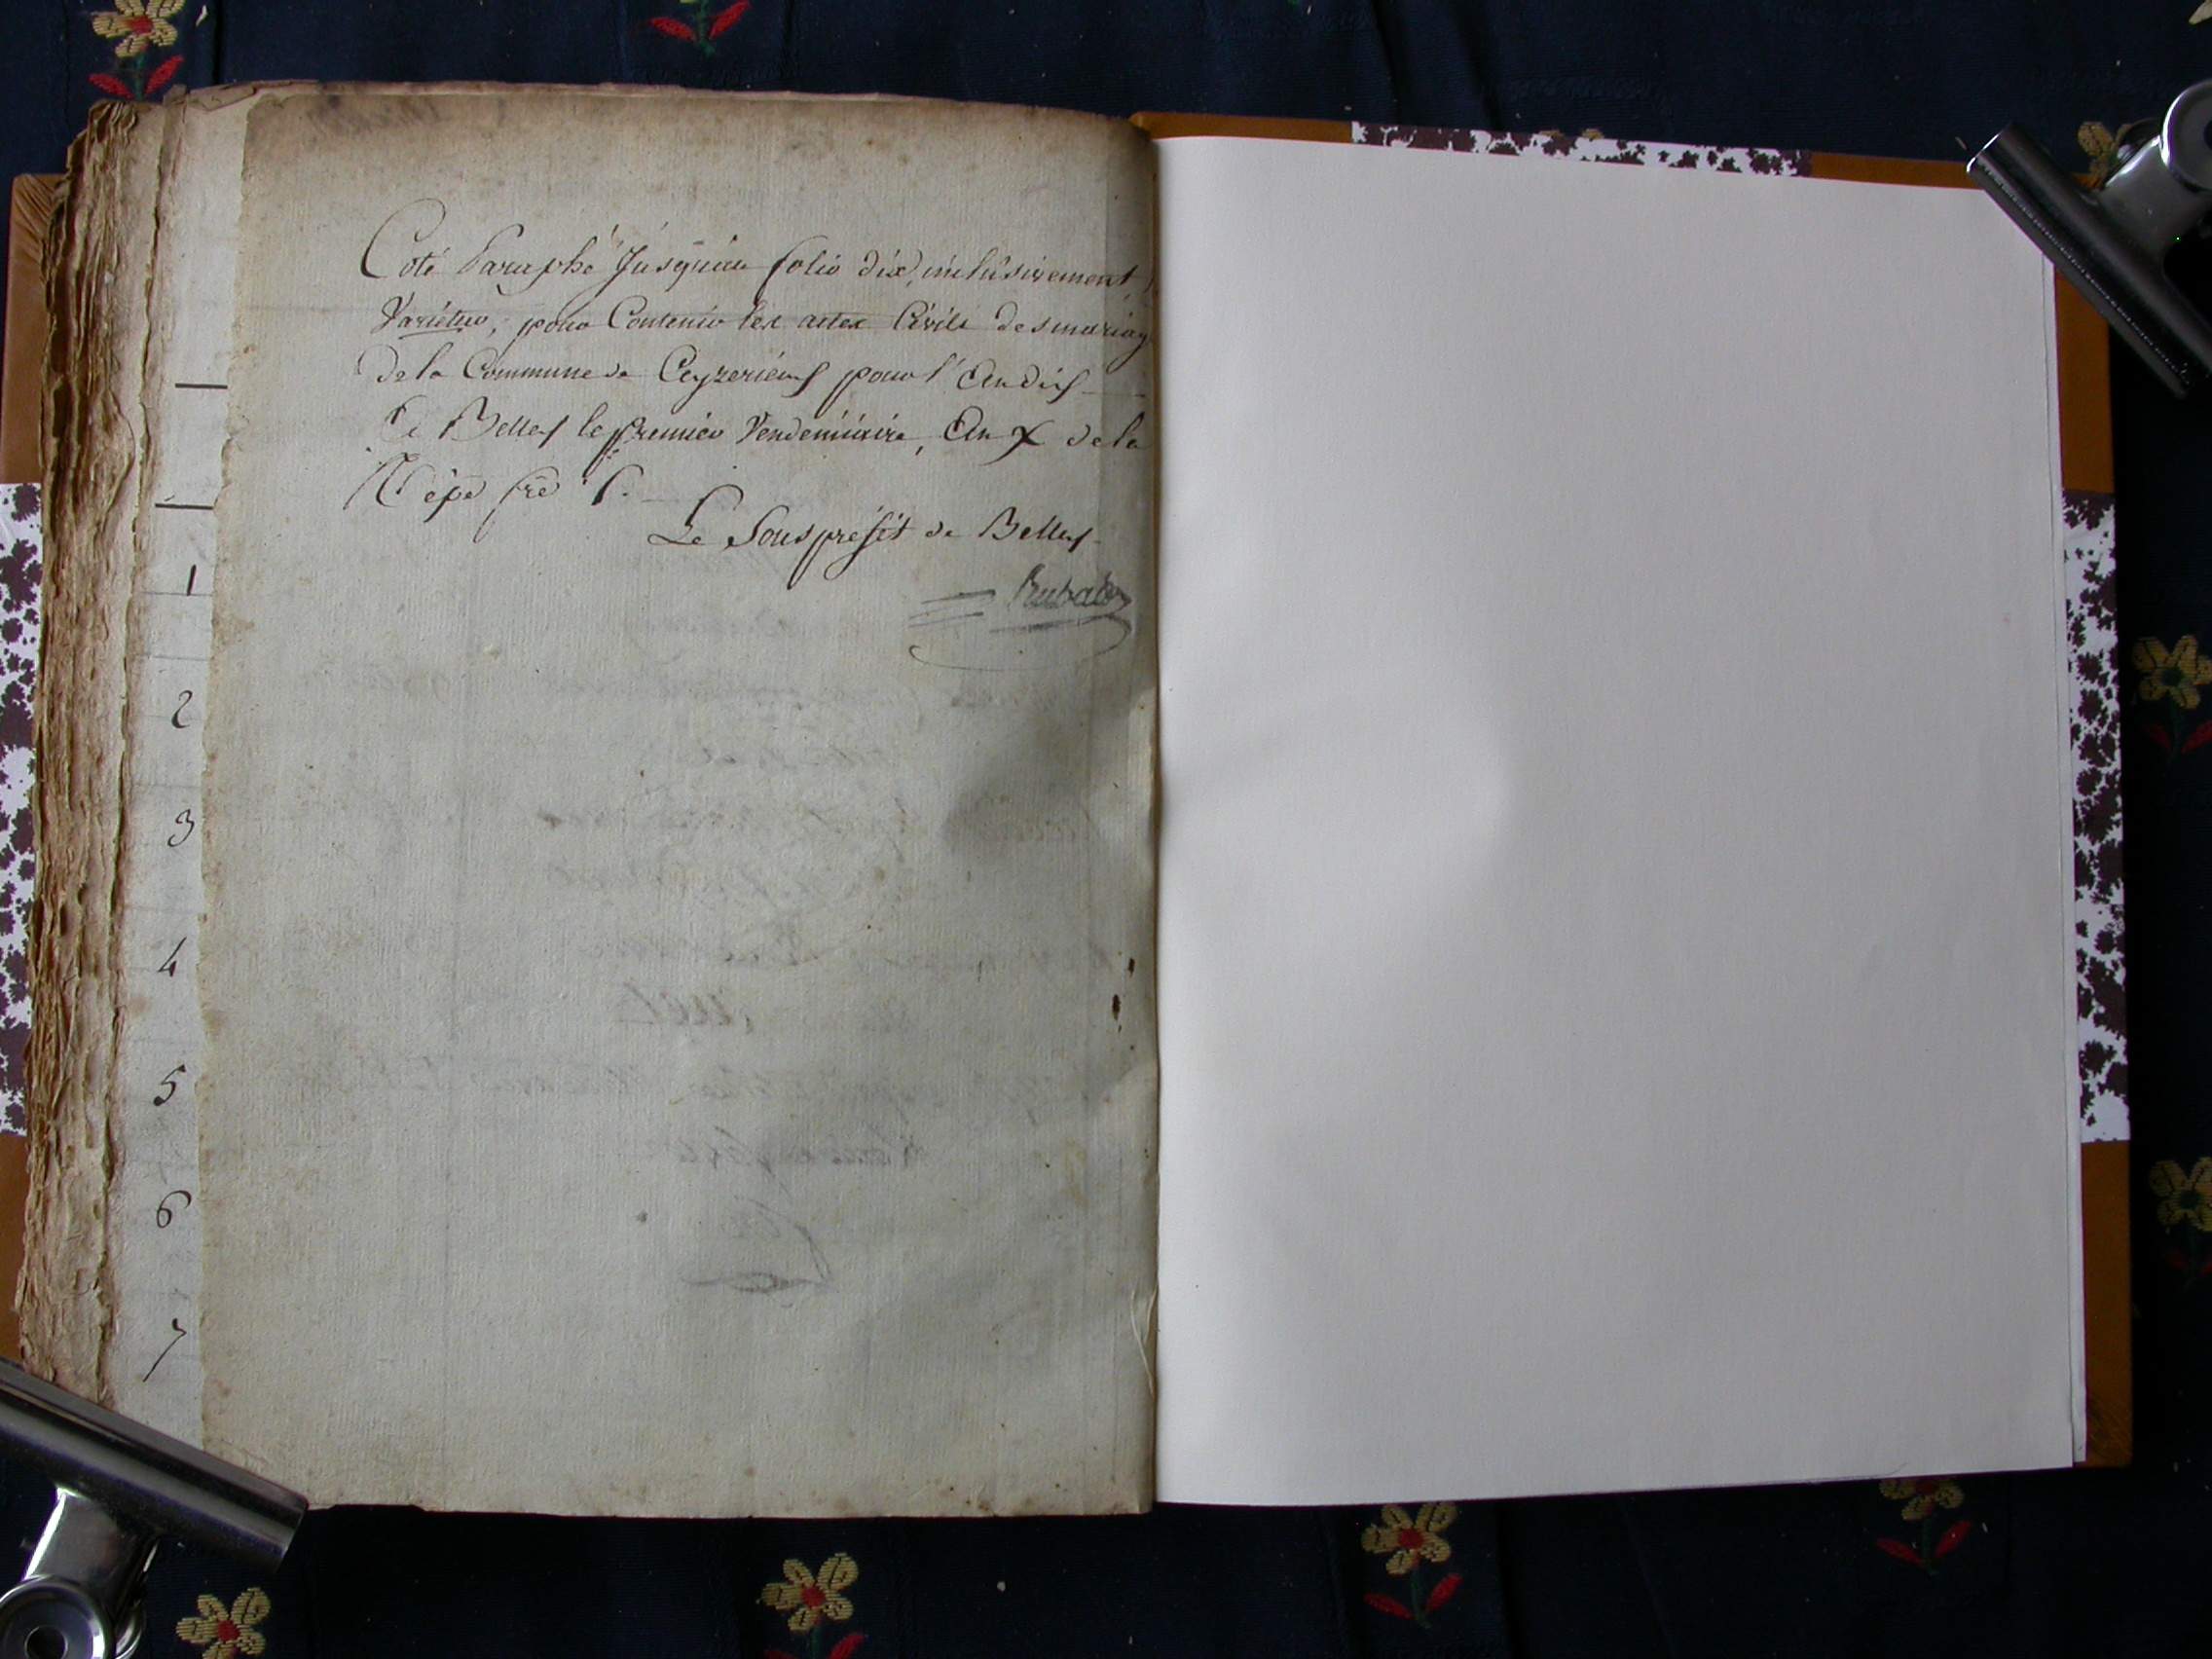 Coté Paraphé Jusqu'au folio dix, inclusivement,
Varietur, pour Contenir les actes Civils des mariag
de la Commune de Ceyzerieux pour l'an dix
A Belley le premier Vendemiaire, An X de la
Répe frse
Le Souspréfét de Belley
Rubat
1
2
3
4
5
6
7